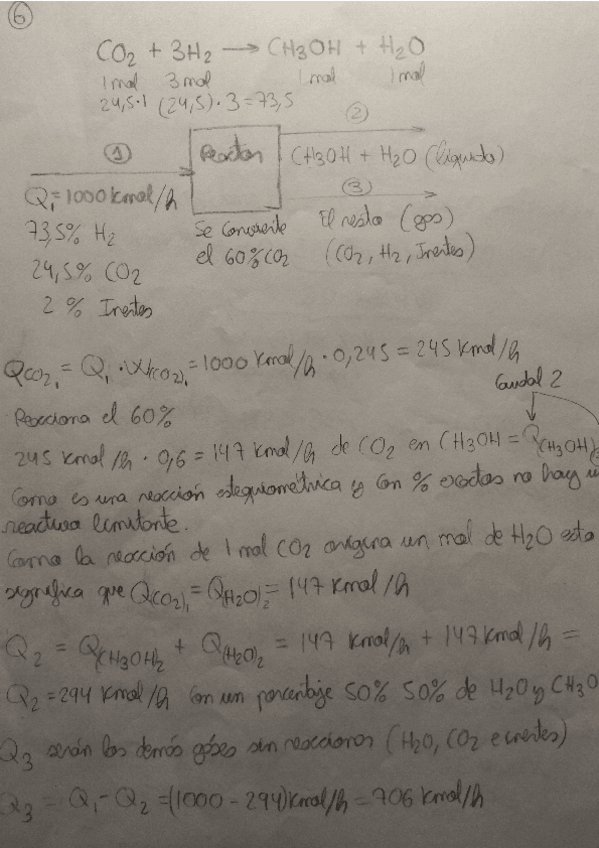 6
CO2 + 3H2 → CH3OH + H2O
1mol 3mol 1mol 1mol
24,5·1 (24,5)·3=73,5
1 Reactor 2
CH3OH + H2O (líquido)
3
Q1=1000 kmol/h Se convierte El resto (gas)
73,5% H2 el 60% CO2 (CO2, H2, Inertes)
24,5% CO2
2% Inertes
QCO2,1 = Q1·W(CO2)1 = 1000 kmol/h · 0,245 = 245 kmol/h
Caudal 2
Reacciona el 60%
245 kmol/h · 0,6 = 147 kmol/h de CO2 en CH3OH = Q(CH3OH)2
Como es una reacción estequiométrica y con % exactos no hay u
reactivo limitante.
Como la reacción de 1 mol CO2 origina un mol de H2O esto
significa que Q(CO2)1 = Q(H2O)2 = 147 kmol/h
Q2 = Q(CH3OH)2 + Q(H2O)2 = 147 kmol/h + 147 kmol/h =
Q2 = 294 kmol/h con un porcentaje 50% 50% de H2O y CH3O
Q3 serán los demás gases sin reaccionar (H2O, CO2 e inertes)
Q3 = Q1 - Q2 = (1000 - 294) kmol/h = 706 kmol/h